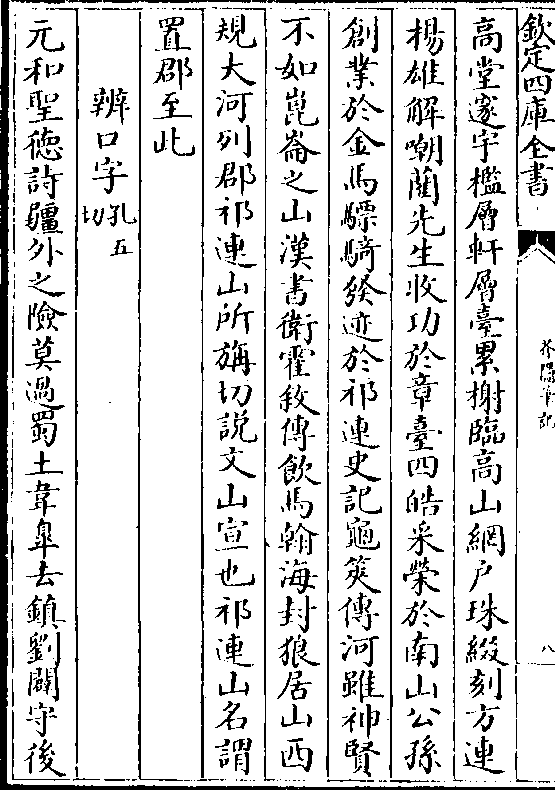 欽定四庫全書
芥隱筆記
八
高堂邃宇檻層軒層臺累榭臨高山網户珠綴刻方連
楊雄解嘲藺先生收功於章臺四皓采榮於南山公孫
創業於金馬驃騎發迹於祁連史記龜筴傳河雖神賢
不如崑崙之山漢書衛霍敘傳飲馬翰海封狼居山西
規大河列郡祁連山所旃切説文山宣也祁連山名謂
置郡至此
辨口字孔五切
元和聖徳詩疆外之險莫過蜀土韋臯去鎮劉闢守後